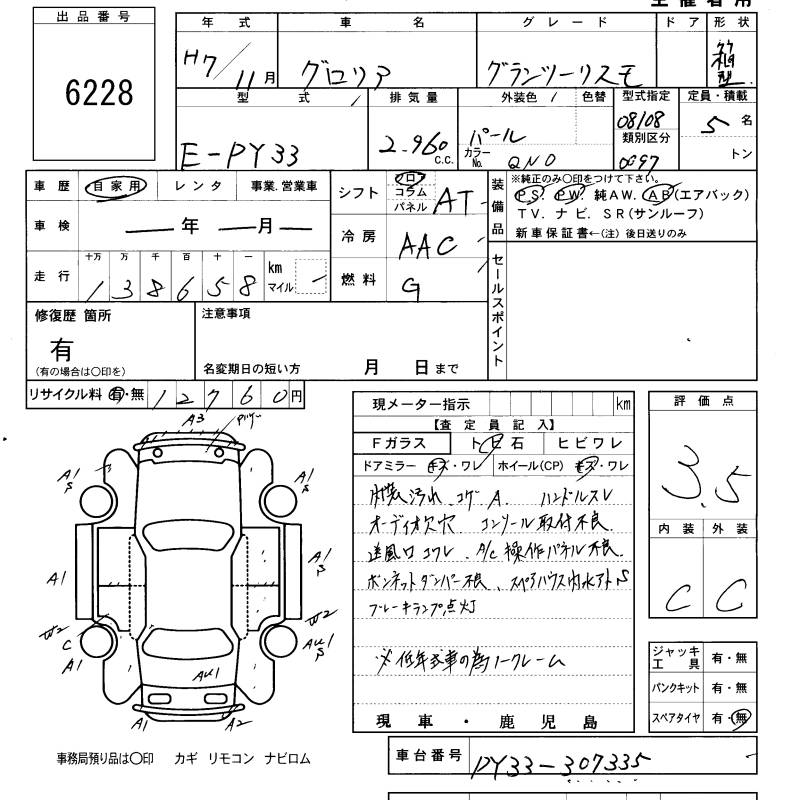 主催者用
出品番号
6228
年式 車名 グレード ドア 形状
H7/11月 グロリア グランツーリスモ 箱型
型式 排気量 外装色 色替 型式指定 定員・積載
E-PY33 2.960 C.C. パール 08108 5名
カラーNo. QN0 類別区分 0097 トン
車歴 自家用 レンタ 事業.営業車
車検 年 月
走行 十万 万 千 百 十 一 km マイル
138658
シフト フロ コラム パネル AT
冷房 AAC
燃料 G
装備品 ※純正のみ○印をつけて下さい。
PS. PW. 純AW. AB(エアバック)
TV. ナビ. SR(サンルーフ)
新車保証書←(注)後日送りのみ
セールスポイント
修復歴 箇所
有
(有の場合は○印を)
注意事項
名変期日の短い方 月 日まで
リサイクル料 有・無 12760円
現メーター指示 km
【査定員記入】
Fガラス ト ビ 石 ヒビワレ
ドアミラー キズ・ワレ ホイール(CP) キズ・ワレ
内装汚れ、コゲ A. ハンドルスレ
オーディオ欠穴 コンソール取付不良
送風口コワレ、A/C操作パネル不良.
ボンネットダンパー不良、スペアハウス内水アト、S
ブレーキランプ点灯
※低年式車の為ノークレーム
現車・鹿児島
評価点
3.5
内装 外装
C C
ジャッキ 工具 有・無
パンクキット 有・無
スペアタイヤ 有・無
A3
A1 S
A1 S
A1
A1 S
W2
C
A1
W2
AW1 S
AW1
A1
A2
事務局預り品は○印 カギ リモコン ナビロム
車台番号 PY33-307335